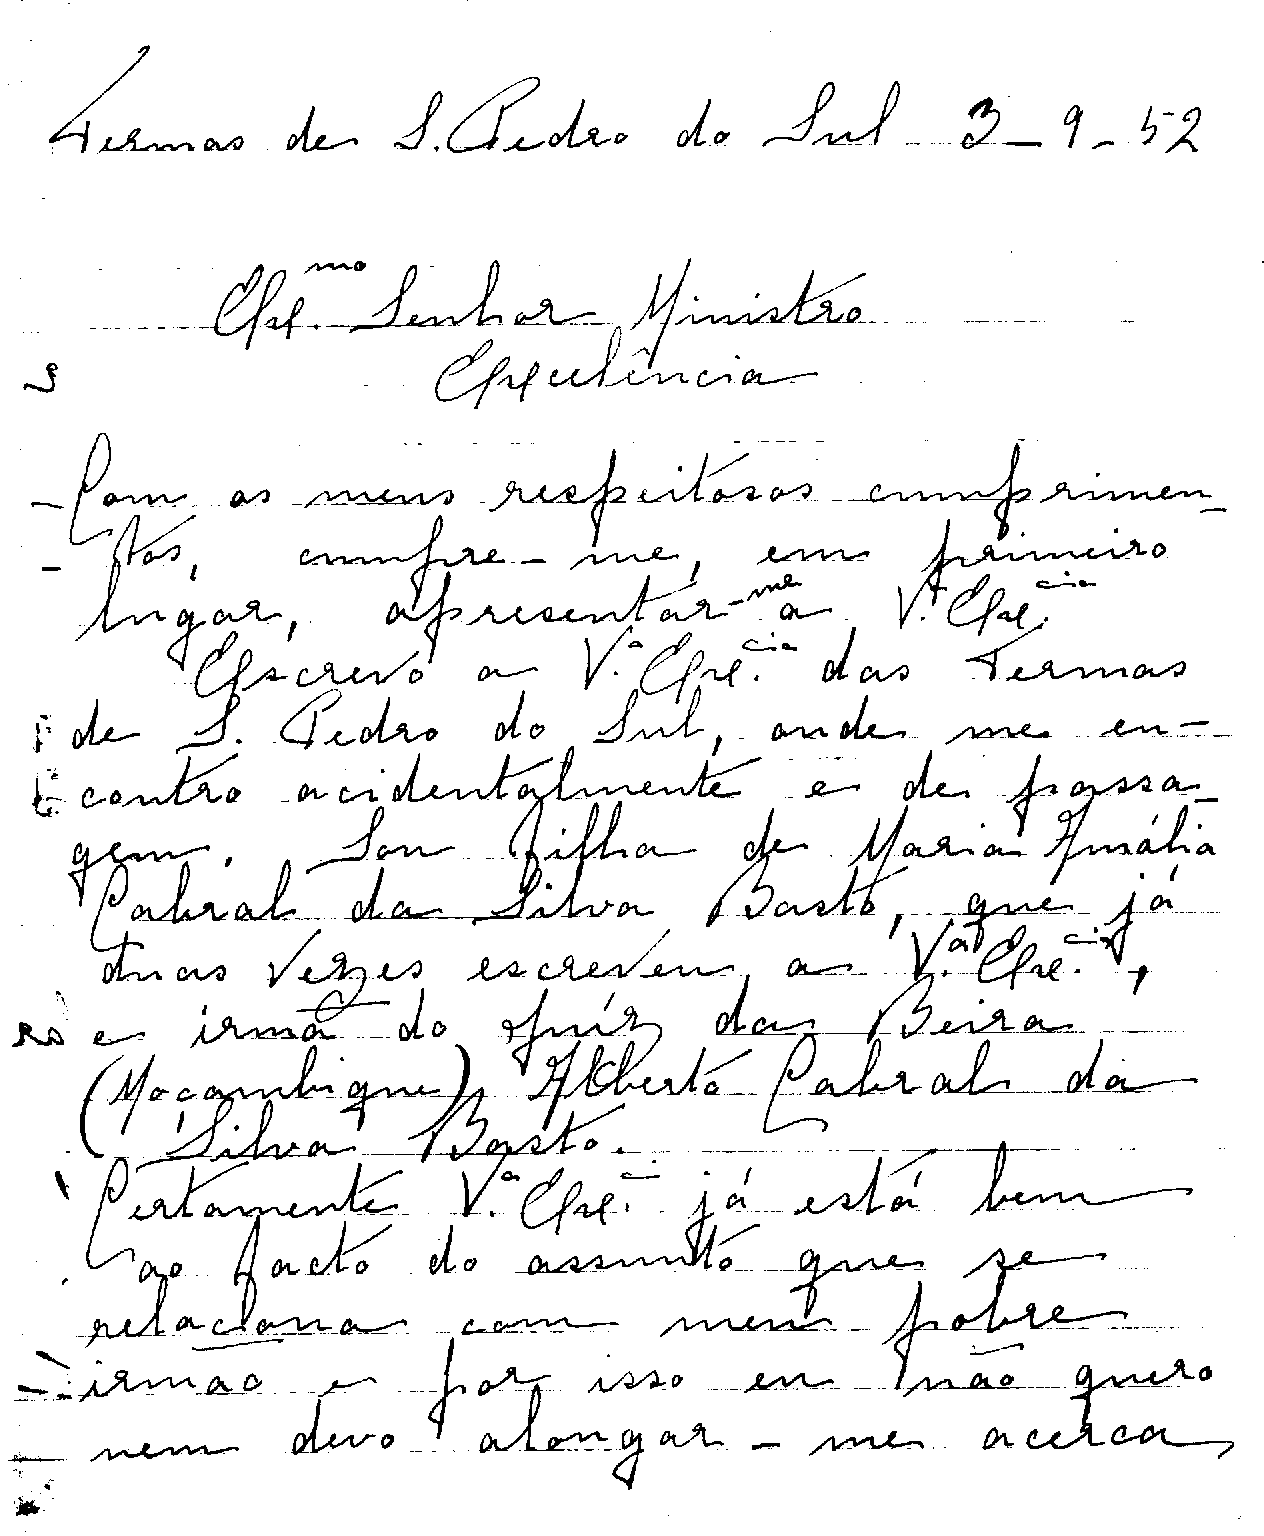 Termas de S. Pedro do Sul - 3-9-52
Exᵐᵒ. Senhor Ministro
Excelência
Com os meus respeitosos cumprimen-
tos, cumpre-me, em primeiro
lugar, apresentar-me a V.ª Exᶜⁱᵃ.
Escrevo a V.ª Exᶜⁱᵃ. das Termas
de S. Pedro do Sul, onde me en-
contro acidentalmente e de passa-
gem. Sou filha de Maria Amália
Cabral da Silva Basto, que já
duas vezes escreveu a V.ª Exᶜⁱᵃ.,
e irmã do juíz da Beira
(Moçambique), Alberto Cabral da
Silva Basto.
Certamente V.ª Exᶜⁱᵃ. já está bem
ao facto do assunto que se
relaciona com meu pobre
irmão e por isso eu não quero
nem devo alongar-me acerca